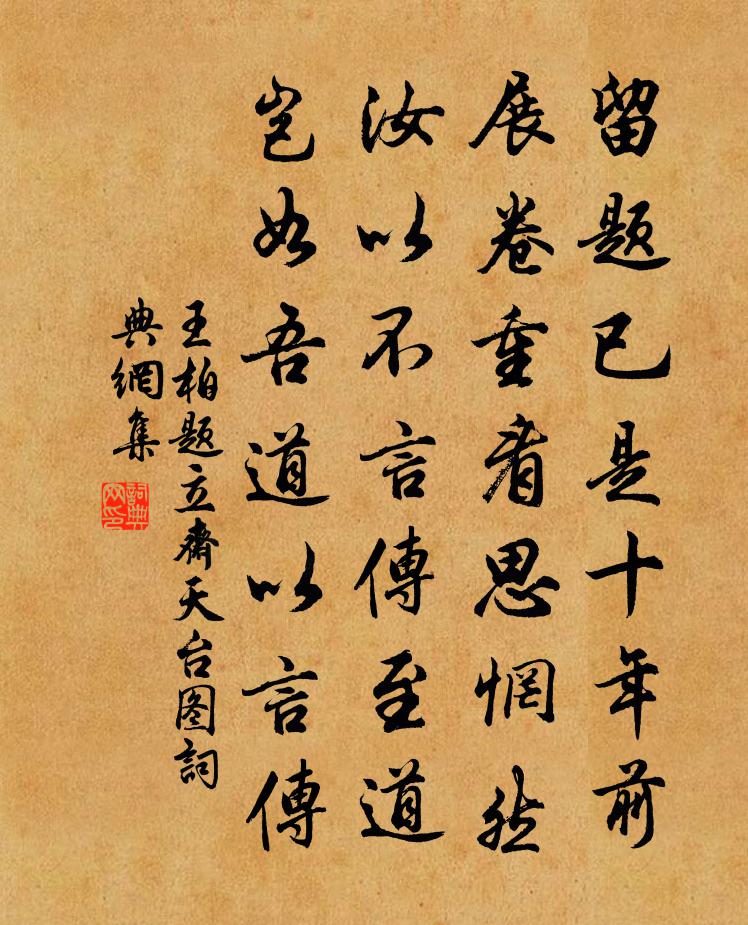 留題已是十年前
展卷重看思惘然
汝以不言傳至道
岂如吾道以言傳
王柏題立齋天台图詞
典網集
詞典
网印